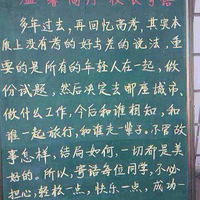 多年过去，再回忆高考，其实本
质上没有考的好与差的说法，重
要的是所有的年轻人在一起，做
份试题，然后决定去哪座城市，
做什么工作，今后和谁相知，和
谁一起旅行，和谁走一辈子。不管故
事怎样，结局如何，一切都是美
好的。所以，寄语每位同学，不必
担心，轻松一点，快乐一点，成功一